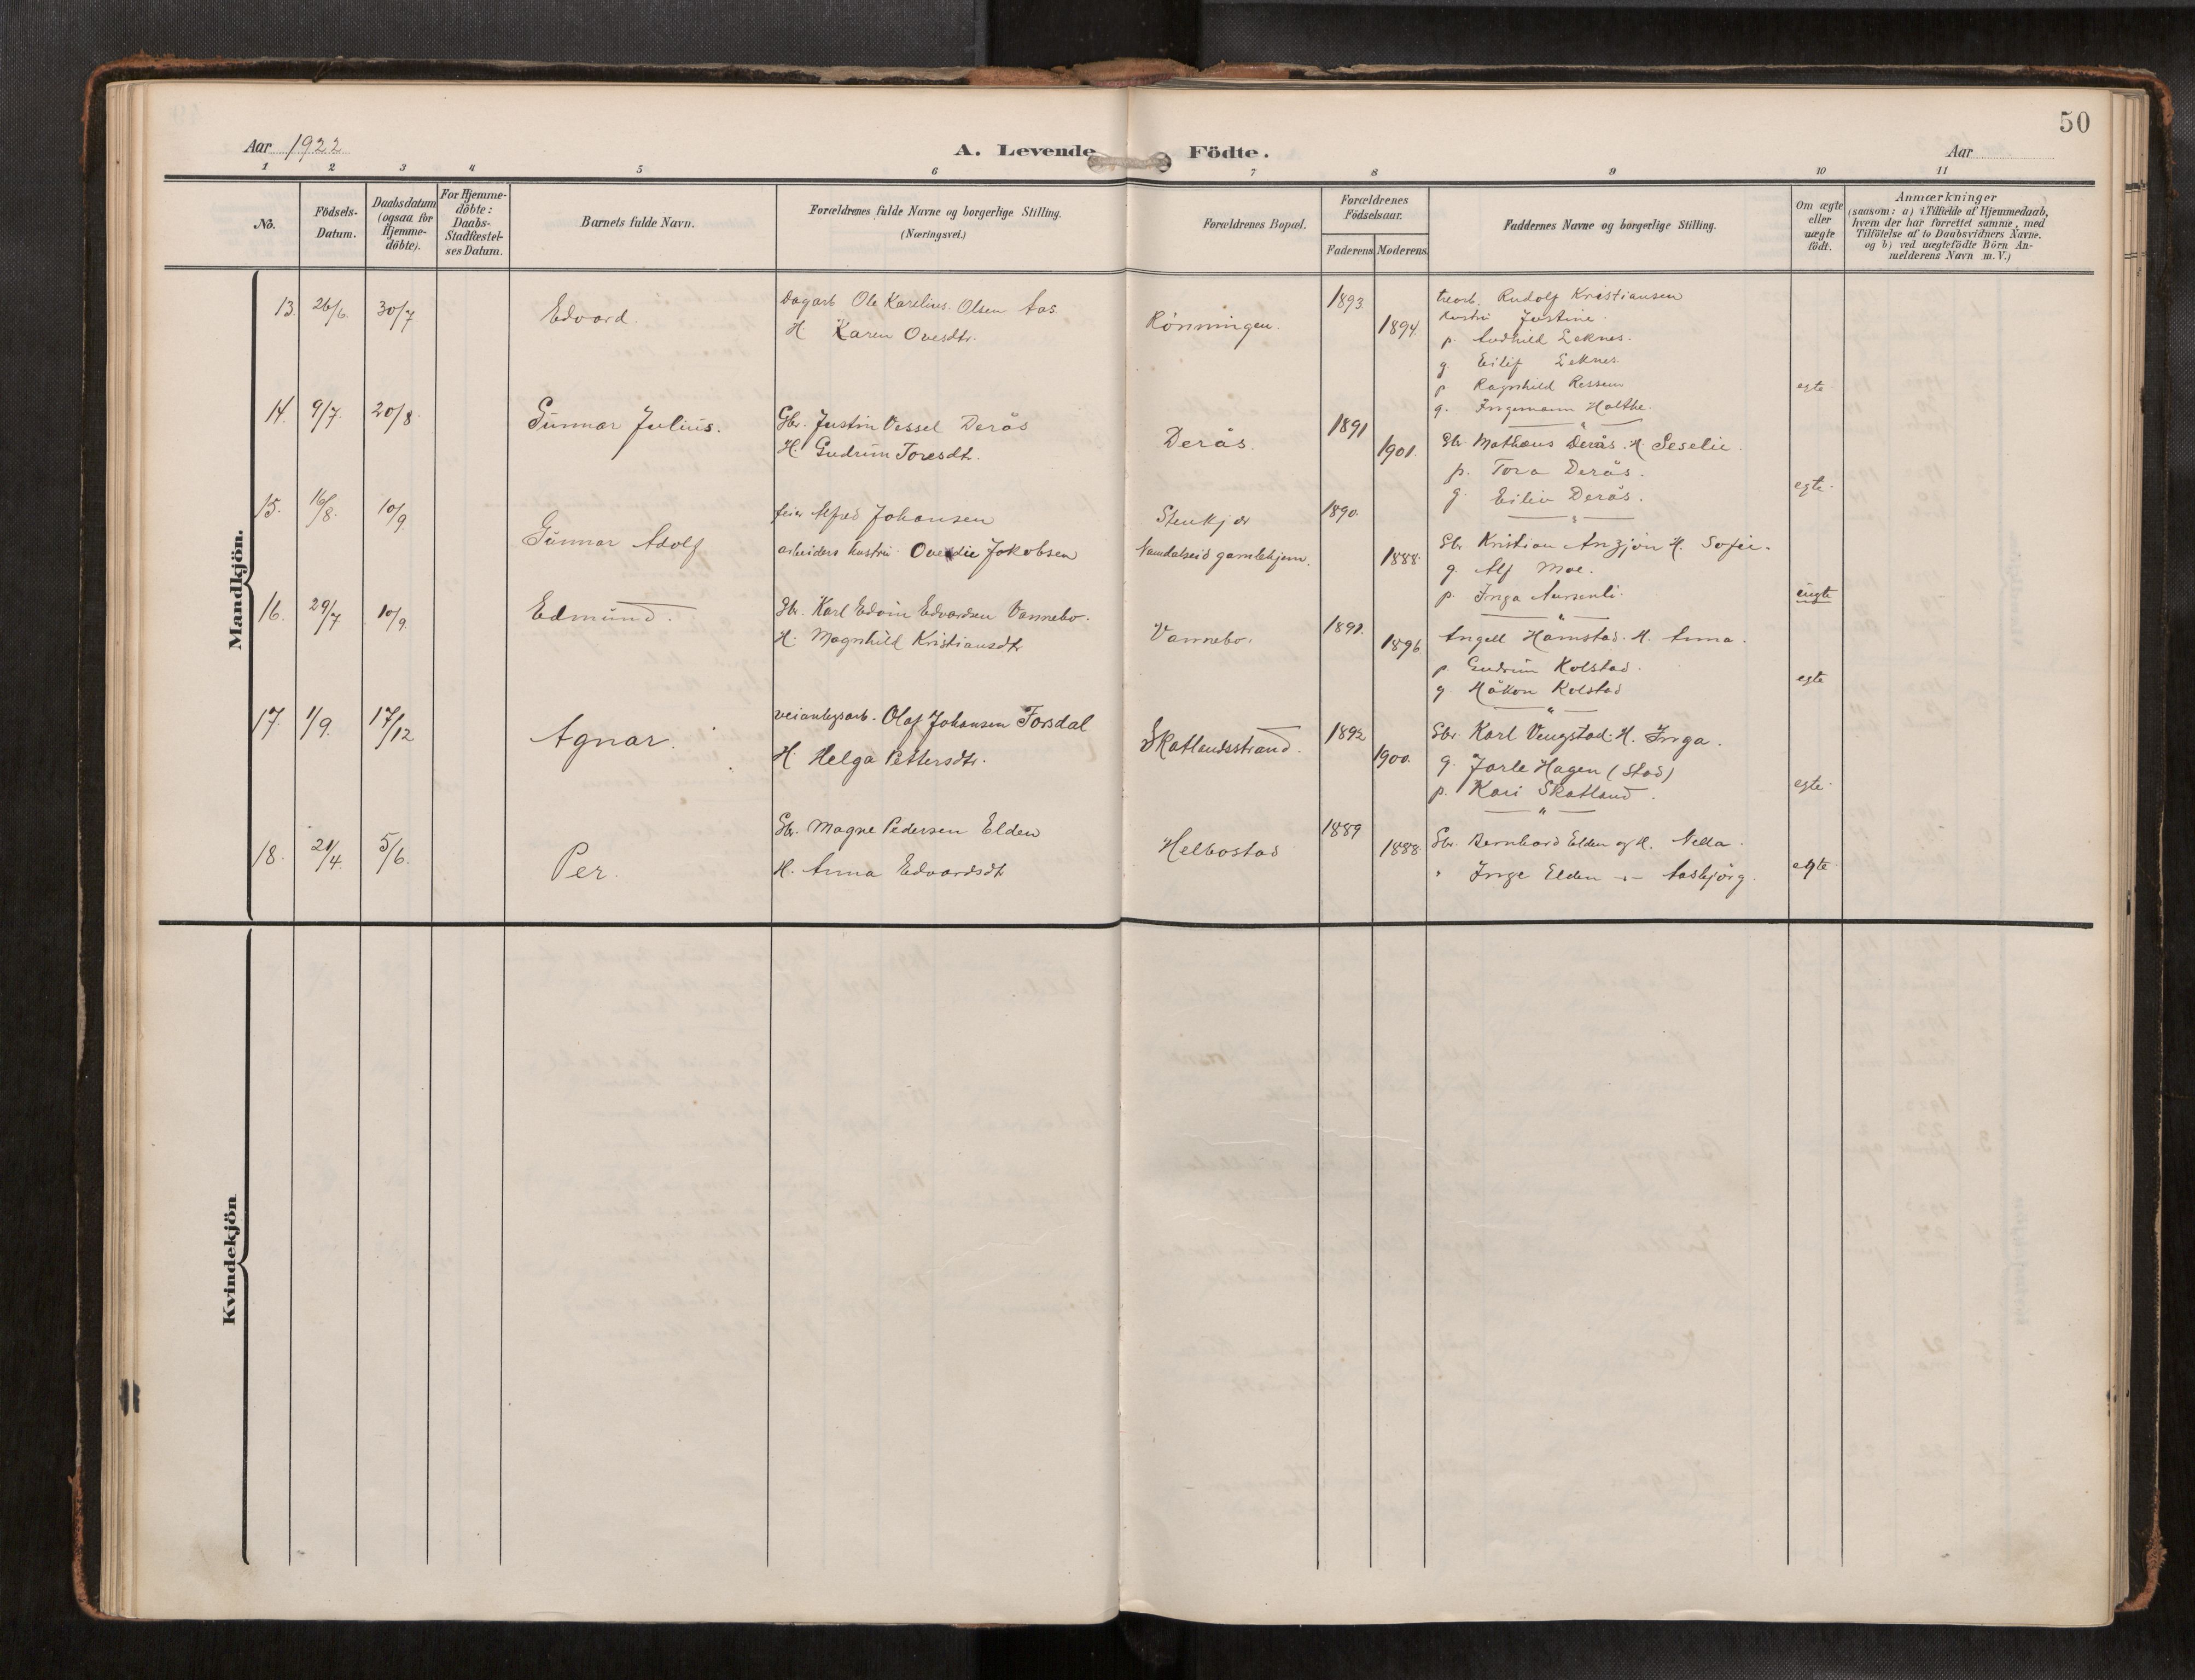 50
Aar 1922
A. Levende Födte.
Aar
1 2 3 4 5 6 7 8 9 10 11
No.
Födsels-
Datum.
Daabsdatum
(ogsaa for
Hjemme-
döbte).
For Hjemme-
döbte:
Daabs-
Stadfæstel-
ses Datum.
Barnets fulde Navn.
Forældrenes fulde Navne og borgerlige Stilling.
(Næringsvei.)
Forældrenes Bopæl.
Forældrenes
Födselsaar.
Faderens Moderens
Faddernes Navne og borgerlige Stilling.
Om ægte
eller
uægte
födt.
Anmærkninger
(saasom: a) i Tilfælde af Hjemmedaab,
hvem der har forrettet samme, med
Tilföielse af to Daabsvidners Navne.
og b) ved uægtefödte Börn An-
melderens Navn m. V.)
Mandkjön.
13. 26/6. 30/7 Edvard.
Dagarb Ole Karelius Olsen Aas.
H. Karen Ovesdtr.
Rönningen. 1893. 1894.
Rudolf Kristiansen
hustru Justine.
p. Audhild Leknes.
g. Eilif Leknes.
p Ragnhild Ressem
g. Ingemann Holthe.
egte
14. 9/7. 20/8. Gunnar Julius.
Gbr. Justin Vessel Derås
H. Gudrun Toresdtr.
Derås. 1891 1901.
Gbr Mathæus Derås. H. Seselie.
p. Tora Derås.
g. Eiliv Derås.
egte.
15. 16/8. 10/9. Gunnar Adolf
feier Alfred Johansen
arbeiders hustru Ovedie Jakobsen
Stenkjær
Namdalseid gamlehjem.
1890. 1888.
Gbr Kristian Anzjön H. Sofie.
g. Alf Moe.
p. Inga Aursenli.
uegte
16. 29/7 10/9. Edmund.
Gbr. Karl Edvin Edvardsen Vannebo.
H. Magnhild Kristiansdtr
Vannebo. 1891. 1896.
Angell Hamstad. H. Anna.
p Gudrun Kolstad.
g Håkon Kolstad
egte
17. 1/9. 17/12 Agnar.
veianlegsarb. Olaf Johansen Forsdal
H. Helga Pettersdtr.
Skatlandsstrand. 1892 1900.
Gbr. Karl Vengstad. H. Inga.
g. Jarle Hagen (Stod)
p. Kari Skatland.
egte.
18. 21/4. 5/6. Per.
Gbr. Magne Pedersen Elden
H. Anna Edvardsdtr
Helbostad 1889 1888.
Gbr. Bernhard Elden og H. Nella.
" Inge Elden -"- Aasbjörg.
egte.
Kvindekjön